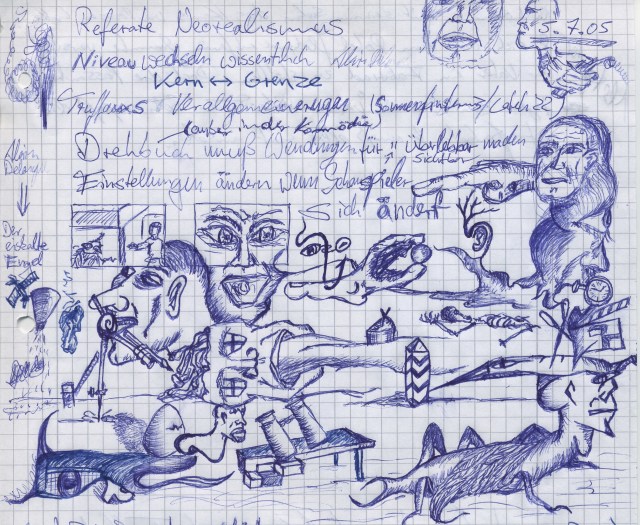 Referate Neorealismus
5.7.05
Niveau wechseln wissentlich
Kern ↔ Grenze
Verallgemeinerungen
(außer in der Kommödie)
Drehbuch muß Wendungen für "überlebbar machen
sichtbar
Einstellungen ändern wenn Schauspieler
sich ändert
Alain
Delon
↓
Der
eiskalte
Engel